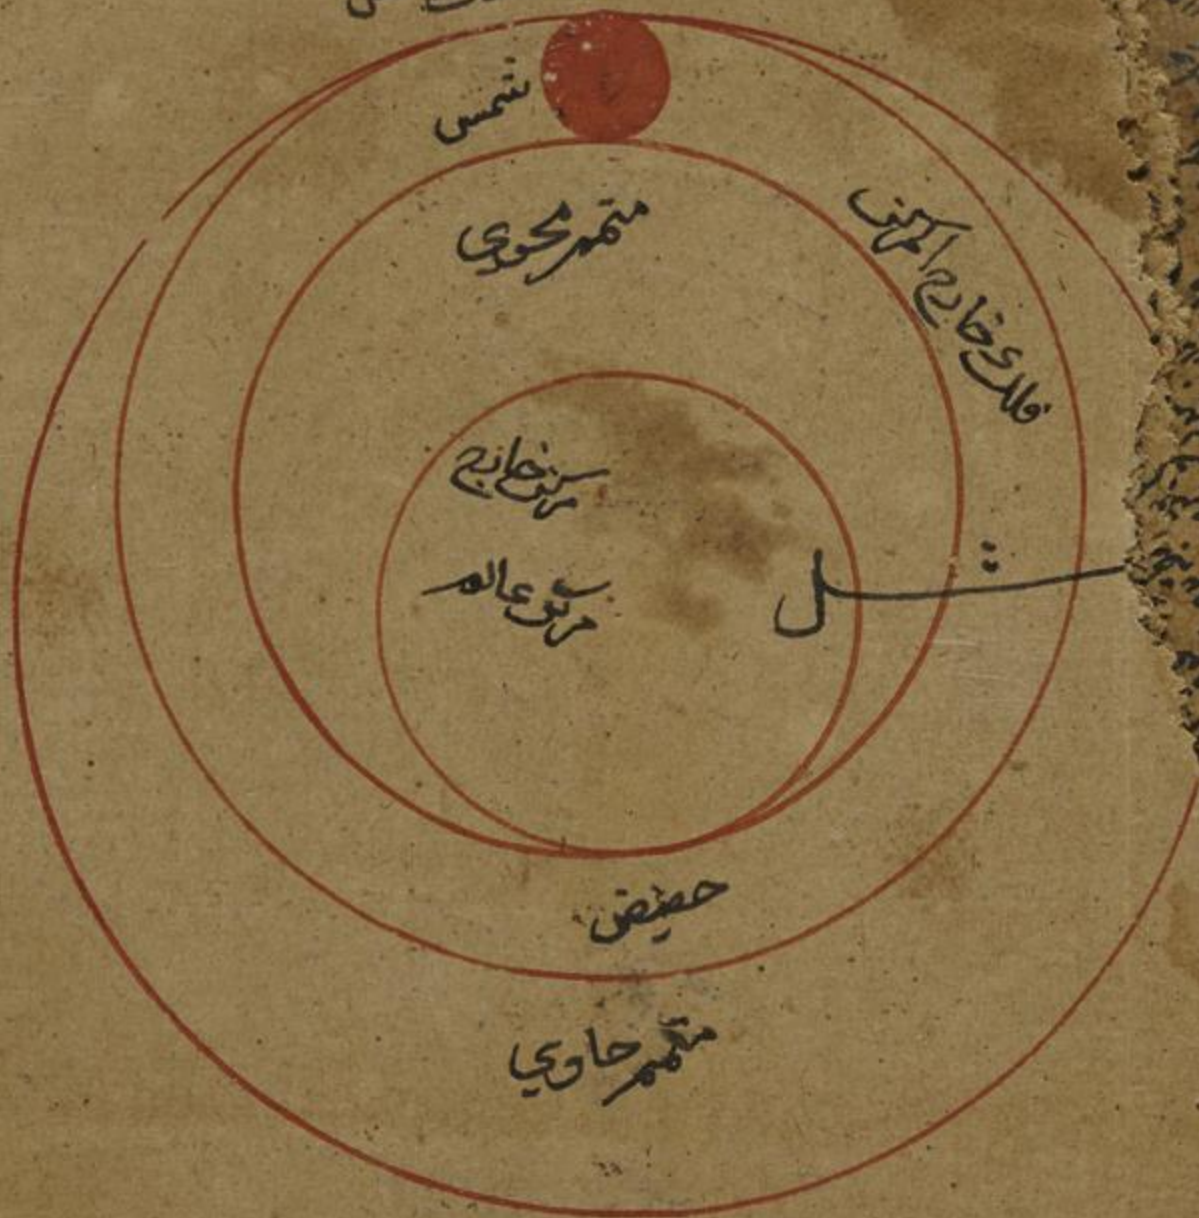 شمس
متمم محوي
فلك خارج المركز
مركز خارج
مركز عالم
حضيض
متمم حاوي